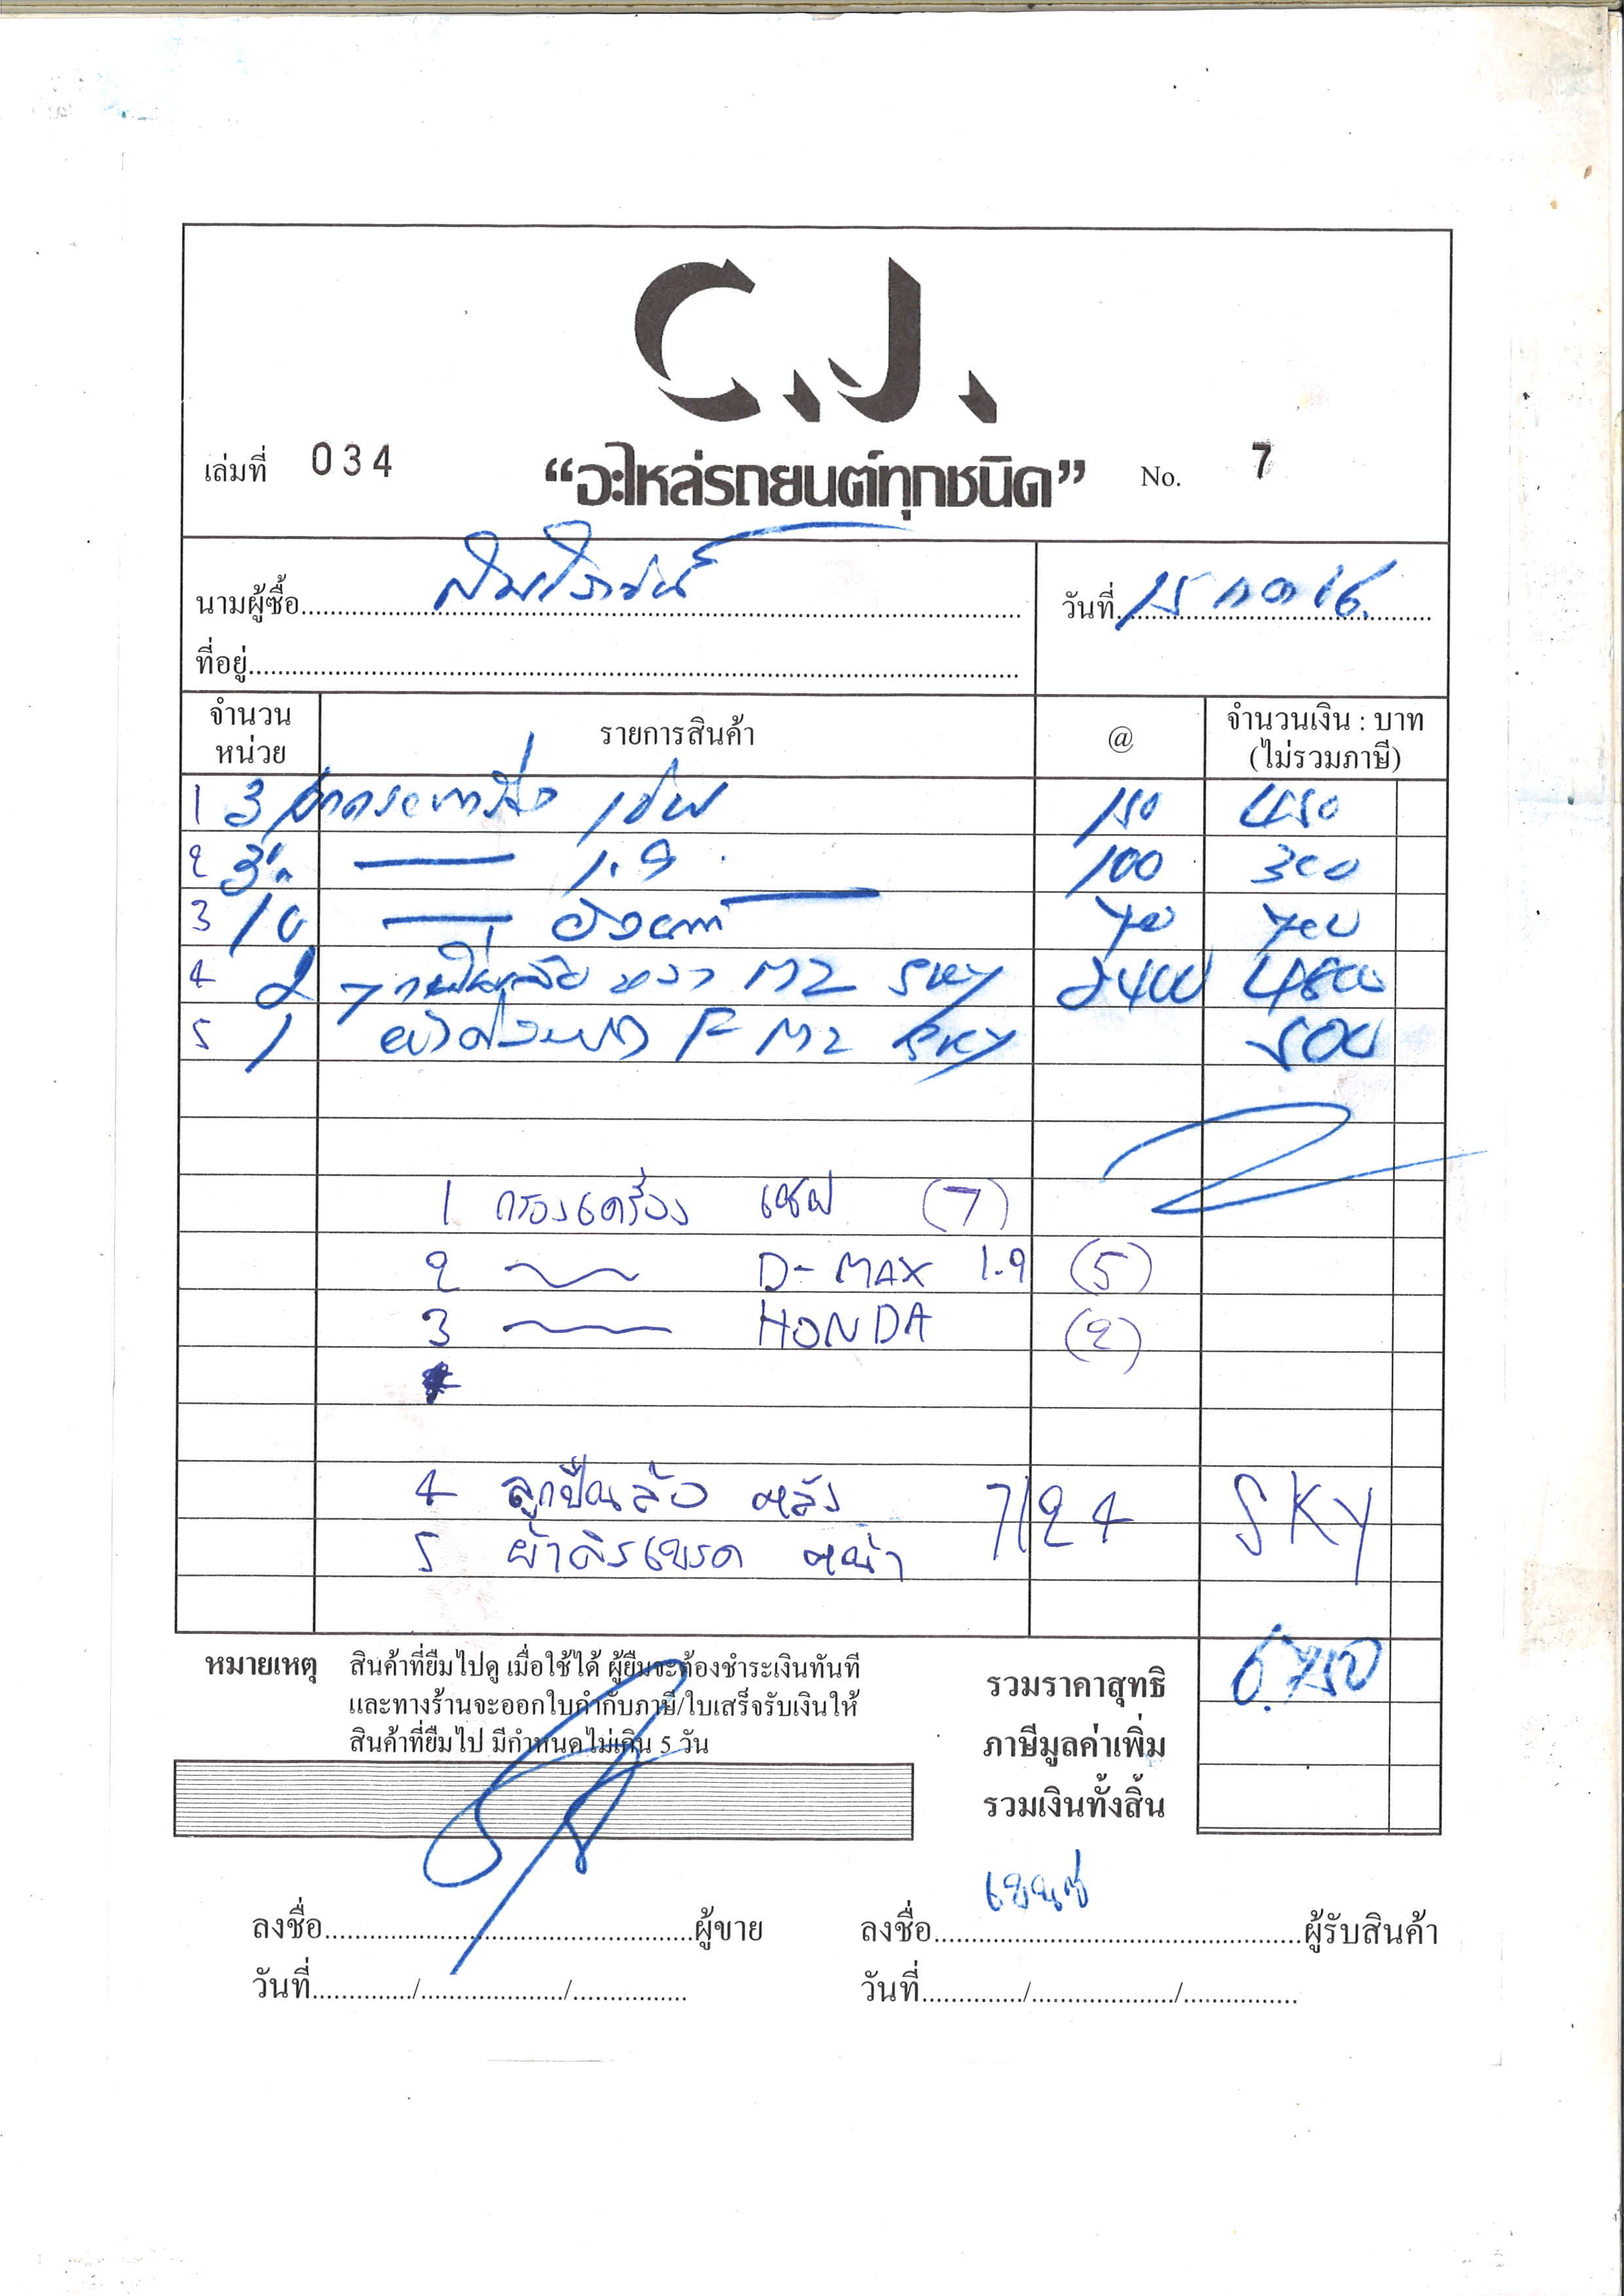 C.J.
เล่มที่ 034 “อะไหล่รถยนต์ทุกชนิด” No. 7
นามผู้ซื้อ
วันที่ 15
ที่อยู่
จำนวนหน่วย รายการสินค้า @ จำนวนเงิน : บาท (ไม่รวมภาษี)
1 3 150 450
2 3 1.9 100 300
3 10 70 700
4 2 M2 SKY 2400 4800
5 1 F M2 SKY 500
1 กรองเครื่อง เชฟ (7)
2 D-MAX 1.9 (5)
3 HONDA (2)
4 ลูกปืนล้อ หลัง 7/24 SKY
5 ผ้าดิสเบรค หน้า
หมายเหตุ สินค้าที่ยืมไปดู เมื่อใช้ได้ ผู้ยืมจะต้องชำระเงินทันที
และทางร้านจะออกใบกำกับภาษี/ใบเสร็จรับเงินให้
สินค้าที่ยืมไป มีกำหนดไม่เกิน 5 วัน
รวมราคาสุทธิ 6,750
ภาษีมูลค่าเพิ่ม
รวมเงินทั้งสิ้น
ลงชื่อ ผู้ขาย ลงชื่อ ผู้รับสินค้า
วันที่ / / วันที่ / /